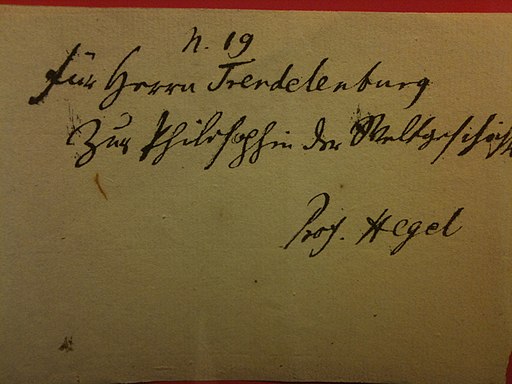 N. 19
Für Herrn Trendelenburg
Zur Philosophie der Weltgeschichte
Prof. Hegel